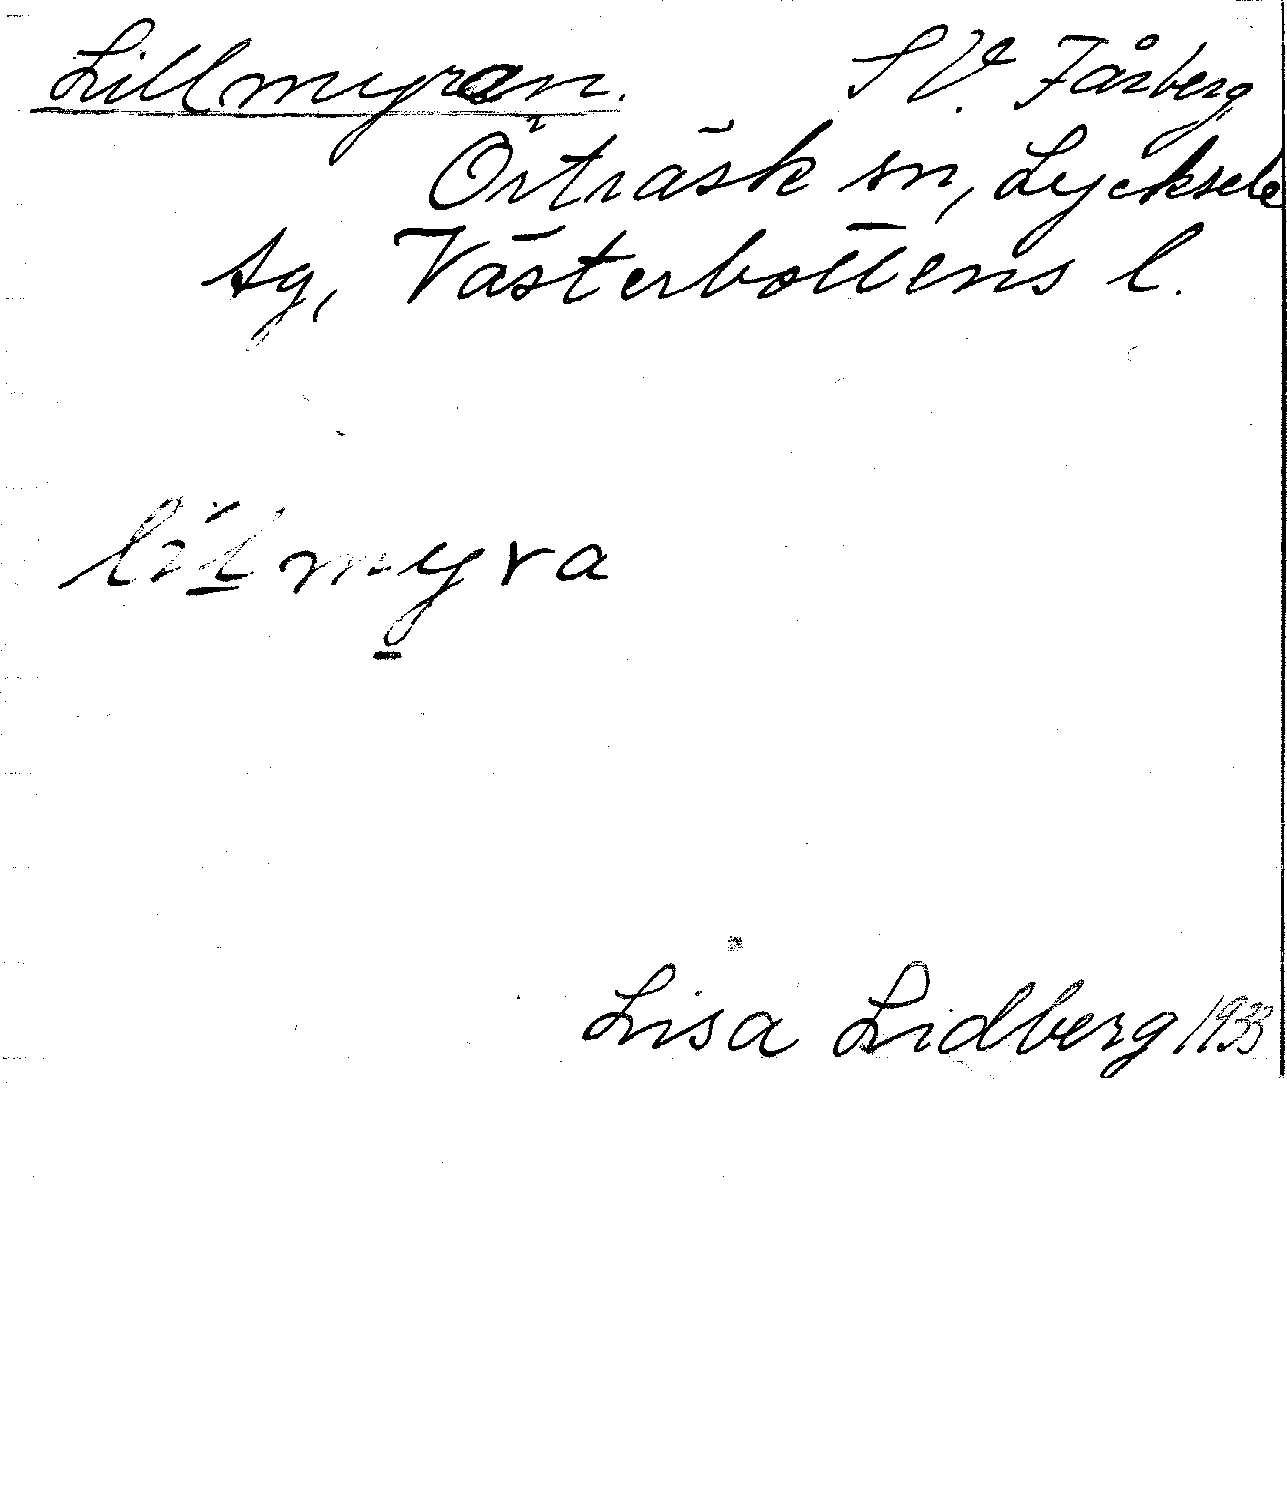 Lillmyran. S V. Fårberg
Örträsk sn, Lycksele
tg, Västerbottens l.
lìlmyra
Lisa Lidberg 1933